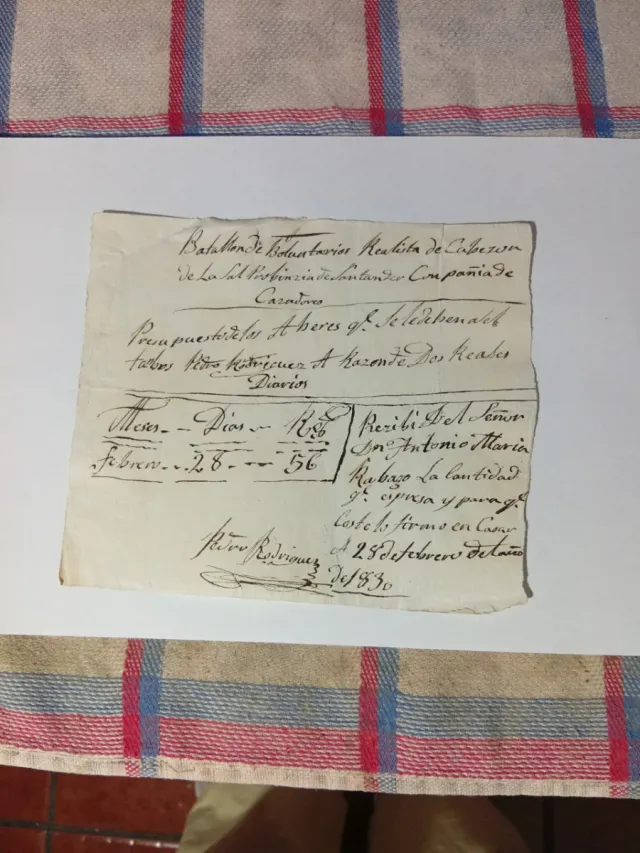 Batallon de Boluntarios Realista de Cabezon
de La Sal Probinzia de Santander Compañia de
Cazadores
Presupuesto de los Aberes qe. Se le deben al
Pedro Rodriguez A Razon de Dos Reales
Diarios
Meses - - Dias - - Rs
Febrero - - 28 - - - 56
Rezibi Del Señor
Dno. Antonio Maria
Rabago La Cantidad
qe. espresa y para qe.
Coste lo firmo en Casar
A 28 de febrero del año
de 1830
Pedro Rodriguez